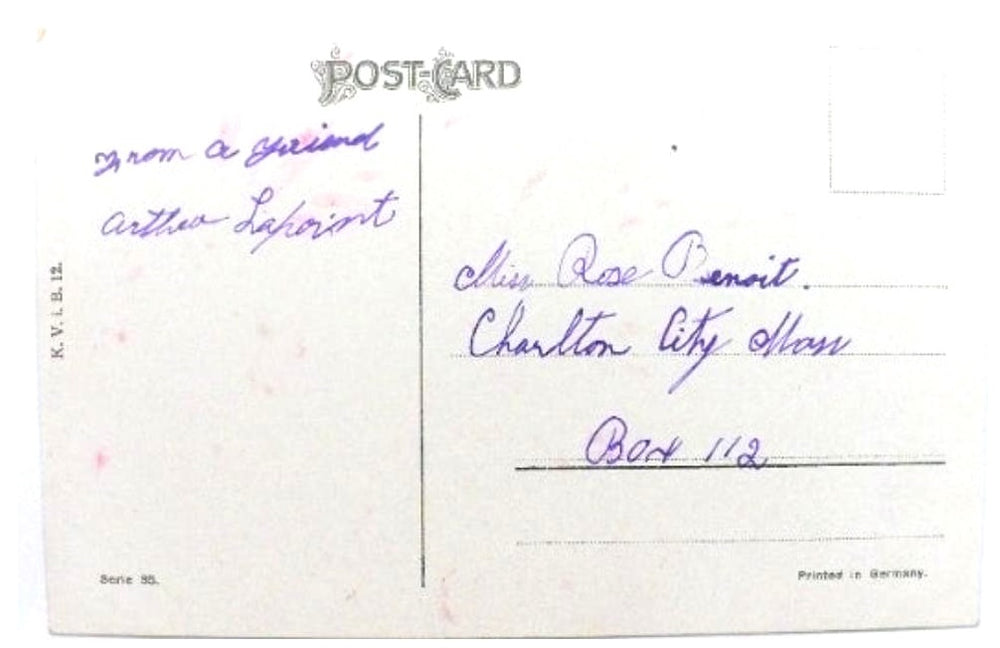 POST-CARD
From a friend
Arthur Lapoint
Miss Rose Benoit.
Charlton City Mass
Box 112
K. V. i. B. 12.
Serie 95.
Printed in Germany.